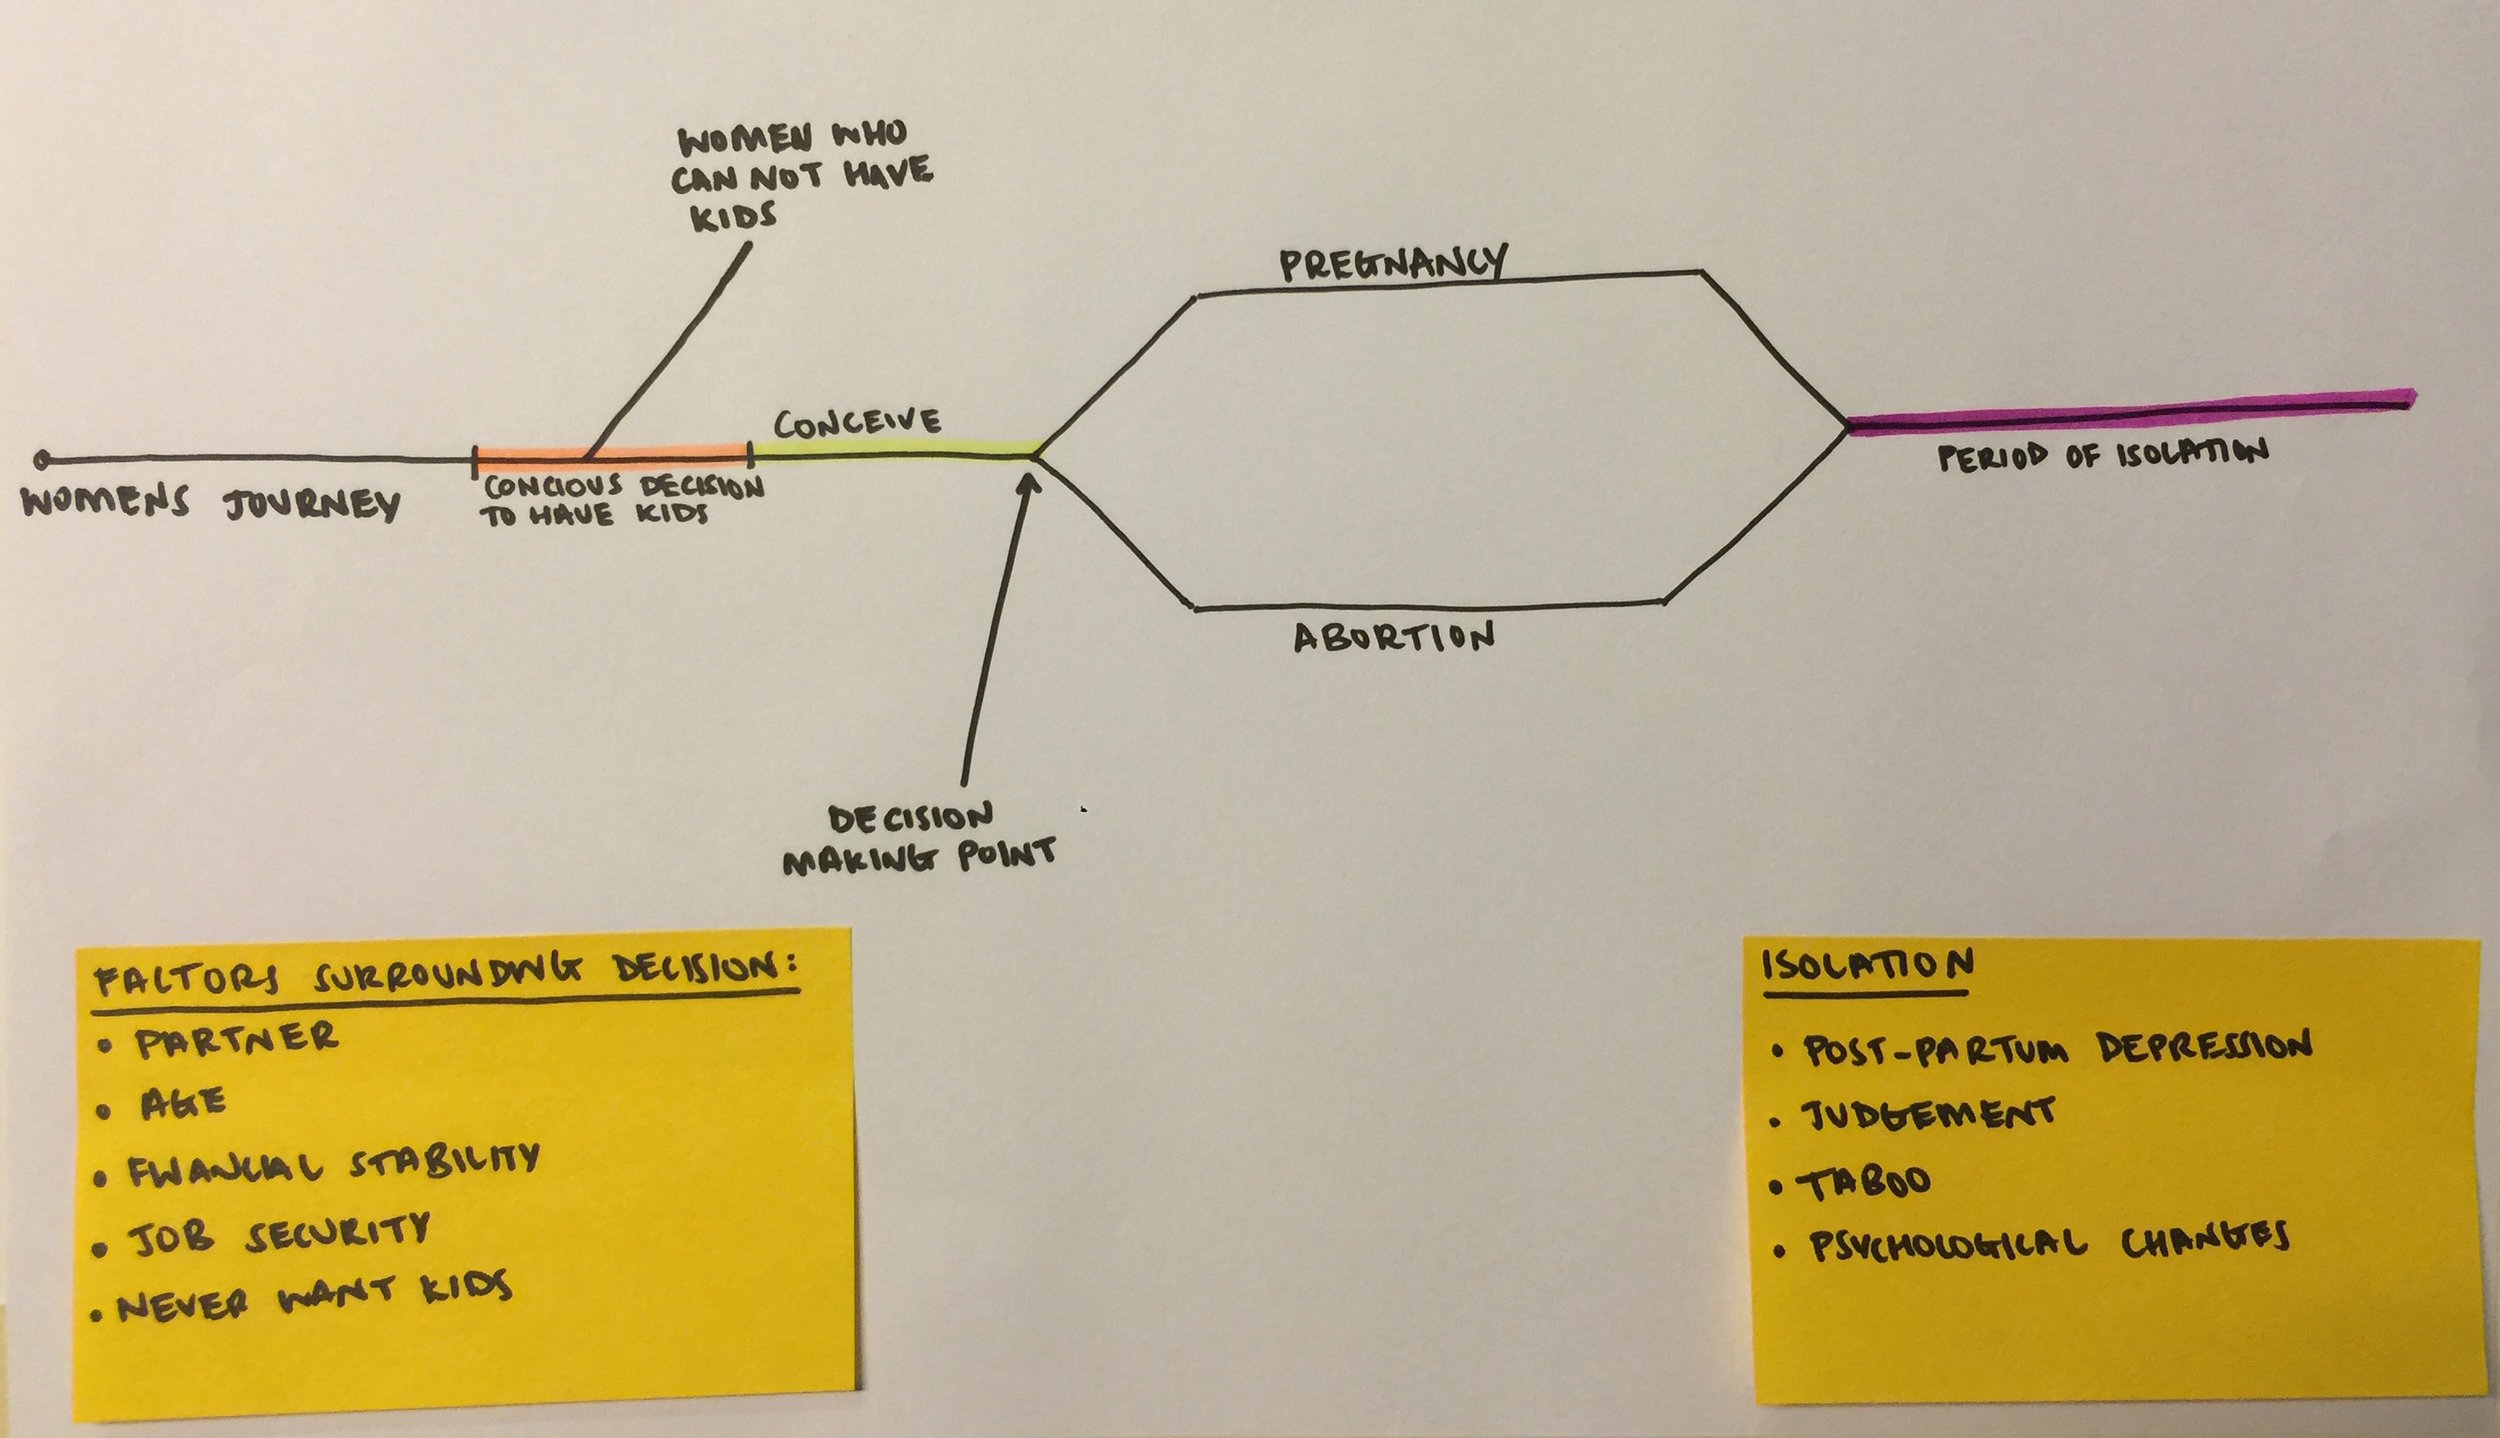 WOMEN WHO
CAN NOT HAVE
KIDS
PREGNANCY
CONCEIVE
WOMENS JOURNEY
CONCIOUS DECISION
TO HAVE KIDS
PERIOD OF ISOLATION
ABORTION
DECISION
MAKING POINT
FACTORS SURROUNDING DECISION:
• PARTNER
• AGE
• FINANCIAL STABILITY
• JOB SECURITY
• NEVER WANT KIDS
ISOLATION
• POST-PARTUM DEPRESSION
• JUDGEMENT
• TABOO
• PSYCHOLOGICAL CHANGES